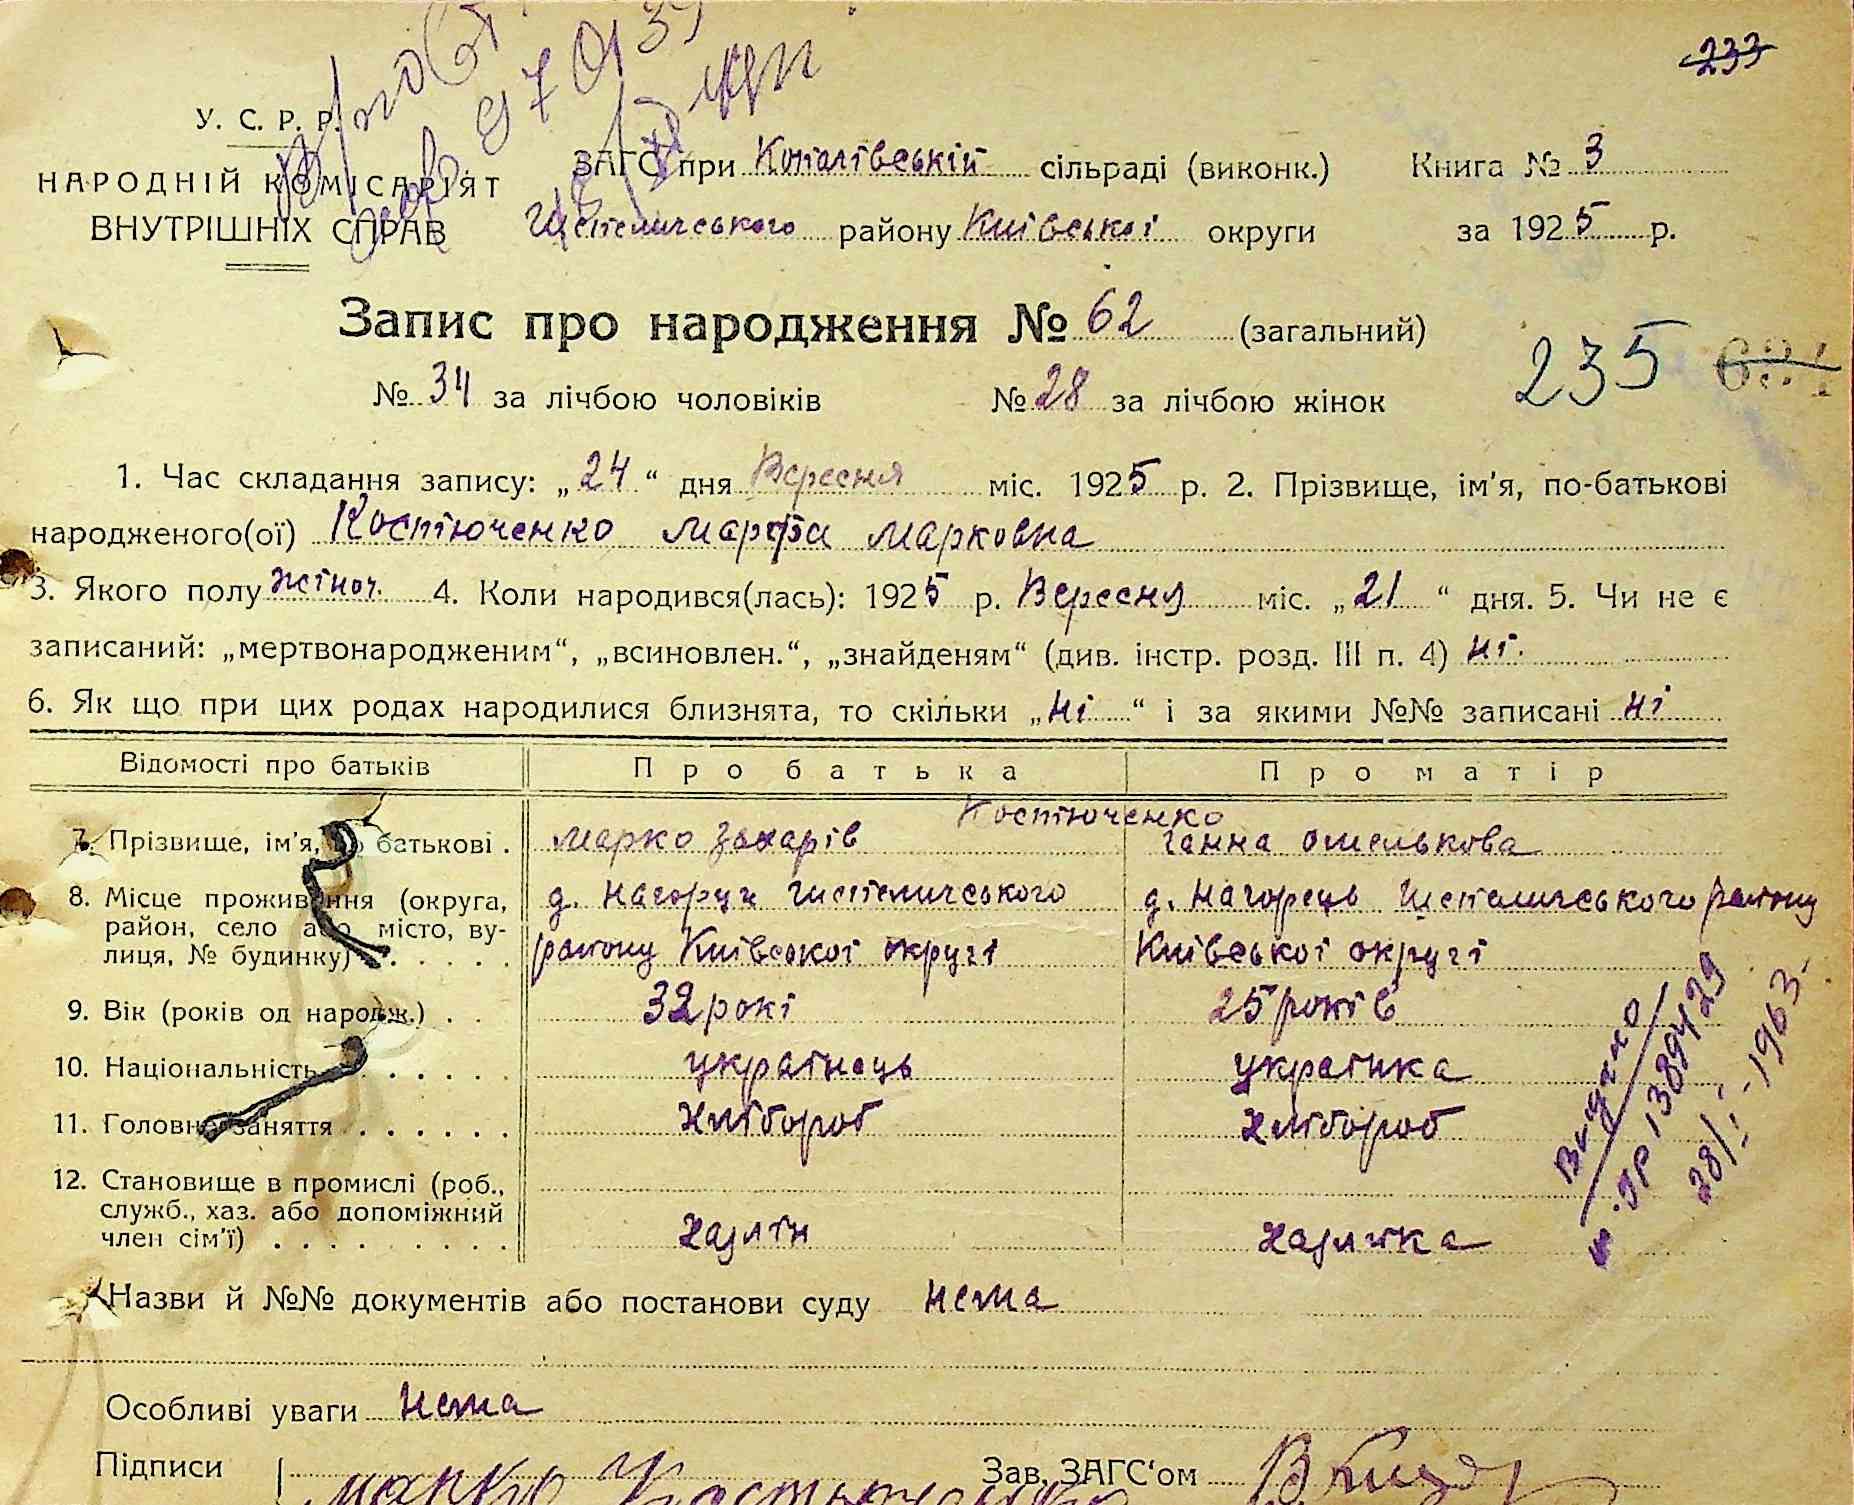 233
У. С. Р. Р.
НАРОДНІЙ КОМІСАРІЯТ
ВНУТРІШНІХ СПРАВ
ЗАГС при Копачівській сільраді (виконк.) Книга № 3
Шепеличського району Київської округи за 1925 р.
Запис про народження № 62 (загальний)
№ 34 за лічбою чоловіків № 28 за лічбою жінок
235
1. Час складання запису: „24“ дня Вересня міс. 1925 р. 2. Прізвище, ім'я, по-батькові
народженого(ої) Костюченко Марфа Марковна
3. Якого полу жіноч. 4. Коли народився(лась): 1925 р. Вересня міс. „21“ дня. 5. Чи не є
записаний: „мертвонародженим“, „всиновлен.“, „знайденям“ (див. інстр. розд. III п. 4) ні.
6. Як що при цих родах народилися близнята, то скільки „ні“ і за якими №№ записані ні
Відомості про батьків Про батька Про матір
Костюченко
7. Прізвище, ім'я, по батькові . Марко Захарів Ганна Омелькова
8. Місце проживання (округа, район, село або місто, ву-лиця, № будинку) . . . . .
д. Нагорци Шепеличського
району Київської округі
д. Нагорець Шепеличського району
Київської округі
9. Вік (років од народж.) . . 32 рокі 25 років
10. Національність . . . . . . українець украінка
11. Головне заняття . . . . . . . Хлібороб Хлібороб
12. Становище в промислі (роб.,
служб., хаз. або допоміжний
член сім'ї) . . . . . . . . . хазяін хазяйка
Видано
ГР 1389429
28/I-1963
Назви й №№ документів або постанови суду нема
Особливі уваги нема
Підписи Марко Костюченко Зав. ЗАГС'ом